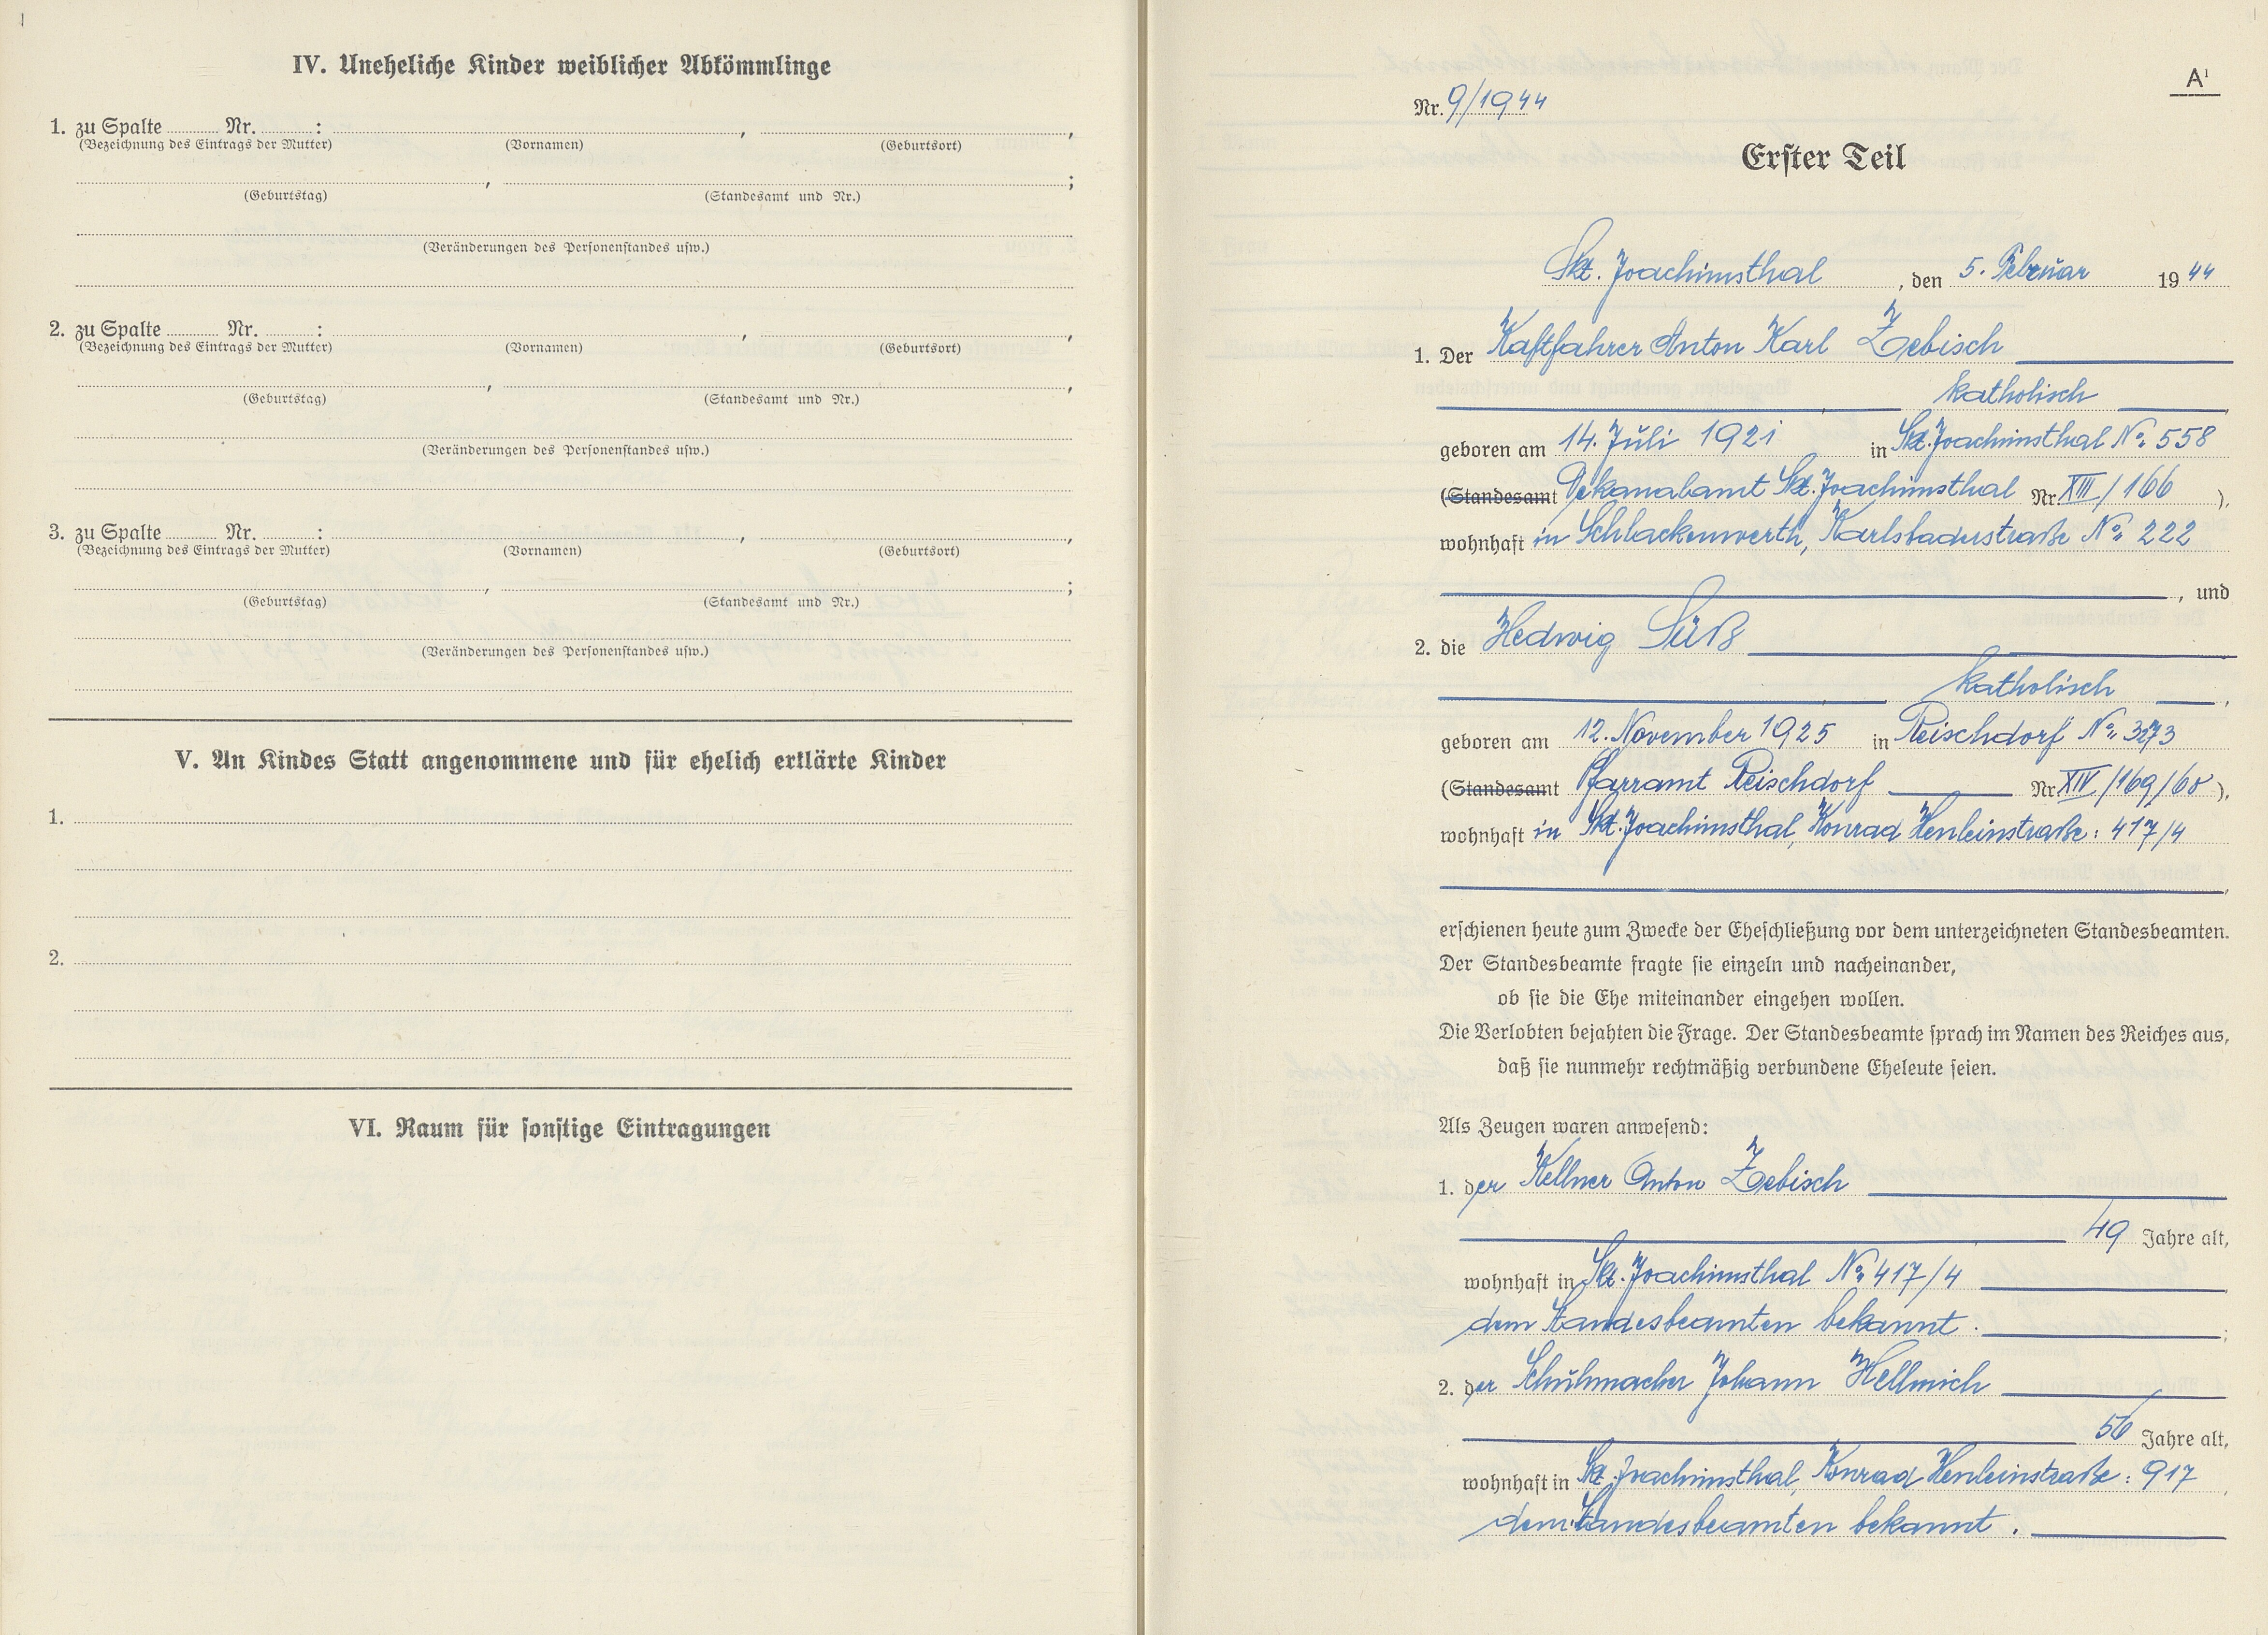 IV. Uneheliche Kinder weiblicher Abkömmlinge
1. zu Spalte ........ Nr. ........ : , ,
(Bezeichnung des Eintrags der Mutter) (Vornamen) (Geburtsort)
, ;
(Geburtstag) (Standesamt und Nr.)
(Veränderungen des Personenstandes usw.)
2. zu Spalte ........ Nr. ........ : , ,
(Bezeichnung des Eintrags der Mutter) (Vornamen) (Geburtsort)
, ,
(Geburtstag) (Standesamt und Nr.)
(Veränderungen des Personenstandes usw.)
3. zu Spalte ........ Nr. ........ : , ,
(Bezeichnung des Eintrags der Mutter) (Vornamen) (Geburtsort)
, ;
(Geburtstag) (Standesamt und Nr.)
(Veränderungen des Personenstandes usw.)
V. An Kindes Statt angenommene und für ehelich erklärte Kinder
1.
2.
VI. Raum für sonstige Eintragungen
A¹
Nr. 9/1944
Erster Teil
Skt. Joachimsthal, den 5. Februar 1944
1. Der Kaftfahrer Anton Karl Zebisch
katholisch,
geboren am 14. Juli 1921 in Skt. Joachimsthal No. 558
(Standesamt Dekanalamt Skt. Joachimsthal Nr XIII/166),
wohnhaft in Schlackenwerth, Karlsbaderstraße No. 222
, und
2. die Hedwig Süß
katholisch,
geboren am 12. November 1925 in Reischdorf No.
(Standesamt Pfarramt Reischdorf Nr XIV/169/60),
wohnhaft in Skt. Joachimsthal, Konrad Henleinstraße: 417/4
,
erschienen heute zum Zwecke der Eheschließung vor dem unterzeichneten Standesbeamten.
Der Standesbeamte fragte sie einzeln und nacheinander,
ob sie die Ehe miteinander eingehen wollen.
Die Verlobten bejahten die Frage. Der Standesbeamte sprach im Namen des Reiches aus,
daß sie nunmehr rechtmäßig verbundene Eheleute seien.
Als Zeugen waren anwesend:
1. der Kellner Anton Zebisch
49 Jahre alt,
wohnhaft in Skt. Joachimsthal No. 417/4
dem Standesbeamten bekannt. ;
2. der Schuhmacher Johann Hellmich
56 Jahre alt,
wohnhaft in Skt. Joachimsthal, Konrad Henleinstraße: 917,
dem Standesbeamten bekannt.